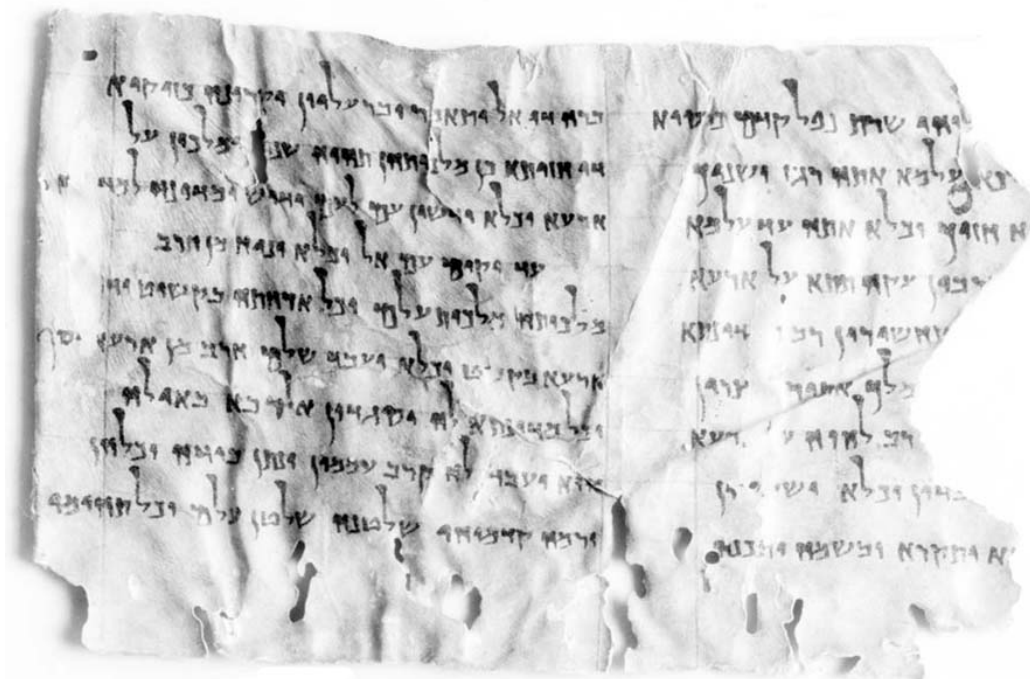 לוהי שרת נפל קדם כרסיא
עלמא אתה רגז ושניך
א חזוך וכלא אתה עד עלמא
רברבין עקה תתא על ארעא
במדינתא
מלך אתור צרין
רב להוה ע ארעא
עבדון וכלא
א יתקרא ובשמה יתכנה
ברה די אל יתאמר ובר עליון יקרונה כזיקיא
די חזותא כן מלכותהן תהוה שני ימלכון על
ארעא וכלא ידשון עם לעם ידוש ומדינה למדי
עד יקום עם אל וכלא יניח מן חרב
מלכותה מלכות עלם וכל ארחתה בקשוט ידי
ארעא בקשט וכלא יעבד שלם חרב מן ארעא יסף
וכל מדינתא לה יסגדון אל רבא באילה
הוא יעבד לה קרב עממין ינתן בידה וכלהן
ירמה קדמוהי שלטנה שלטן עלם וכל תהומי